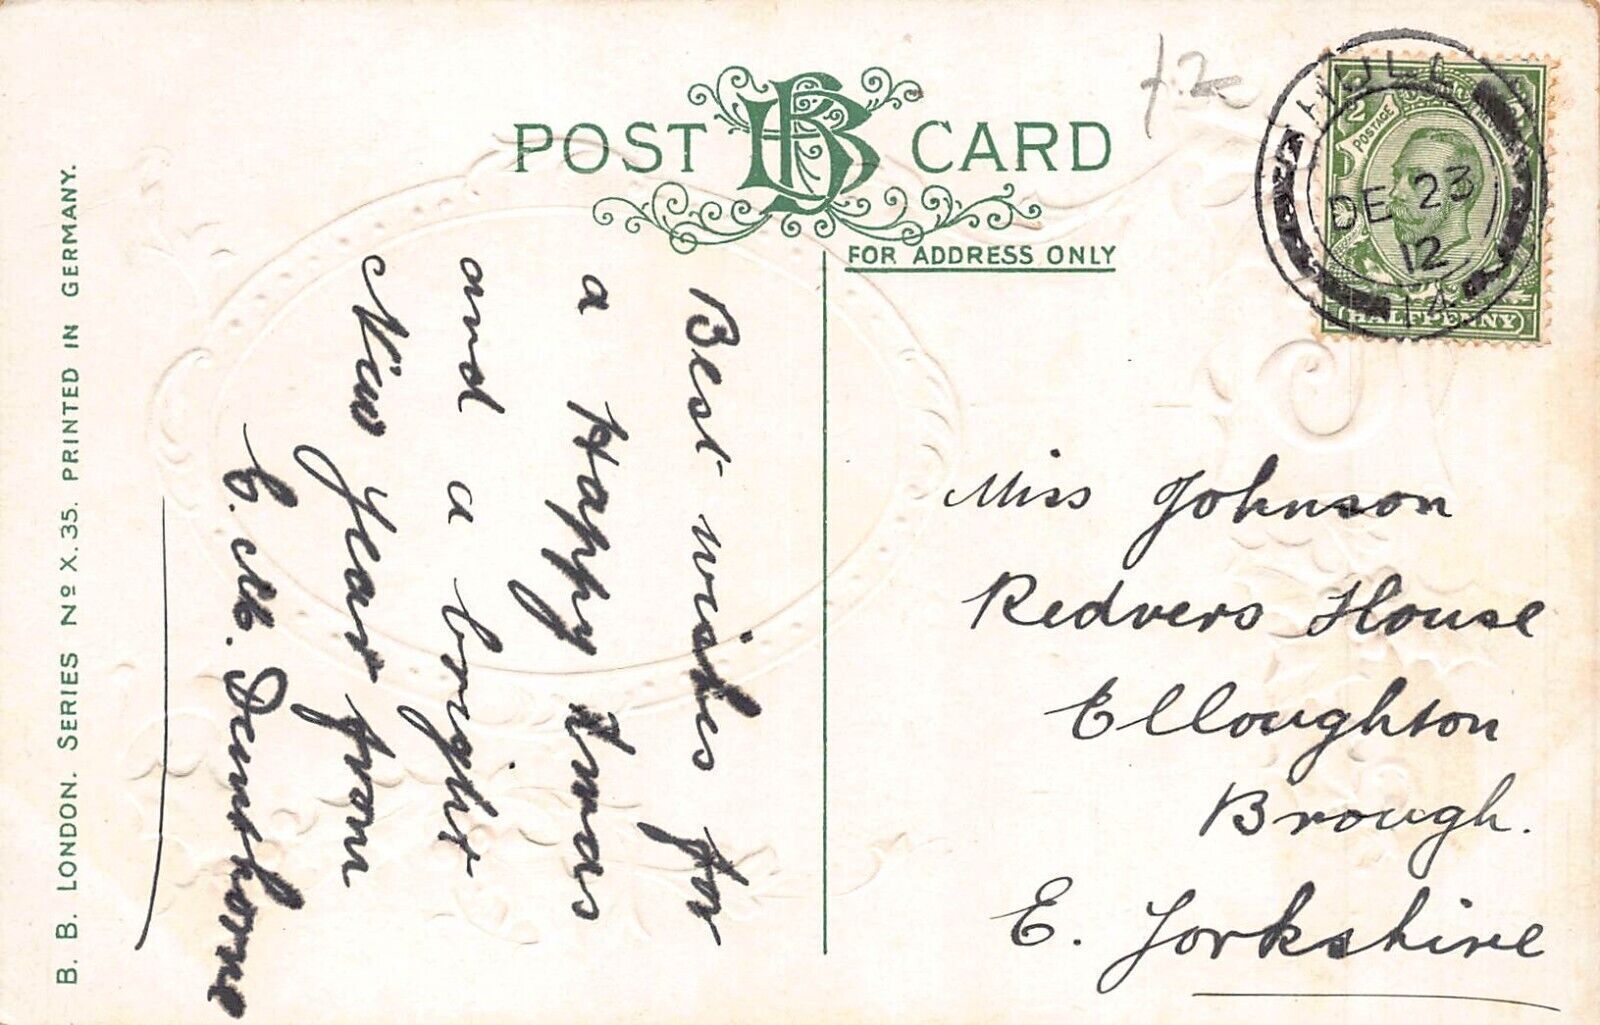 B. B. LONDON. SERIES Nº X. 35. PRINTED IN GERMANY.
POST CARD
FOR ADDRESS ONLY
Best wishes for
a Happy Xmas
and a bright
New Year from
E. M.
Miss Johnson
Redvers House
Elloughton
Brough.
E. Yorkshire
HULL
DE 23
12
14
POSTAGE
HALFPENNY